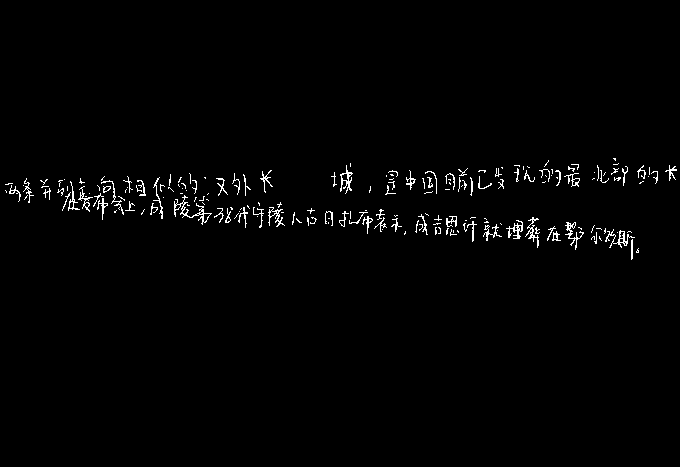 两条并列走向相似的汉外长 城，是中国目前已发现的最北部的长
在发布会上，成陵第38代守陵人古日扎布表示，成吉思汗就埋葬在鄂尔多斯。